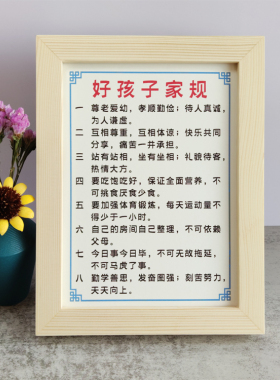 好孩子家规
一 尊老爱幼，孝顺勤俭；待人真诚，
为人谦虚。
二 互相尊重，互相体谅；快乐共同
分享，痛苦一并承担。
三 站有站相，坐有坐相；礼貌待客，
热情大方。
四 要吃饱吃好，保证全面营养，不
可挑食厌食少食。
五 要加强体育锻炼，每天运动量不
得少于一小时。
六 自己的房间自己整理，不可依赖
父母。
七 今日事今日毕，不可无故拖延，
不可马虎了事。
八 勤学善思，发奋图强；刻苦努力，
天天向上。